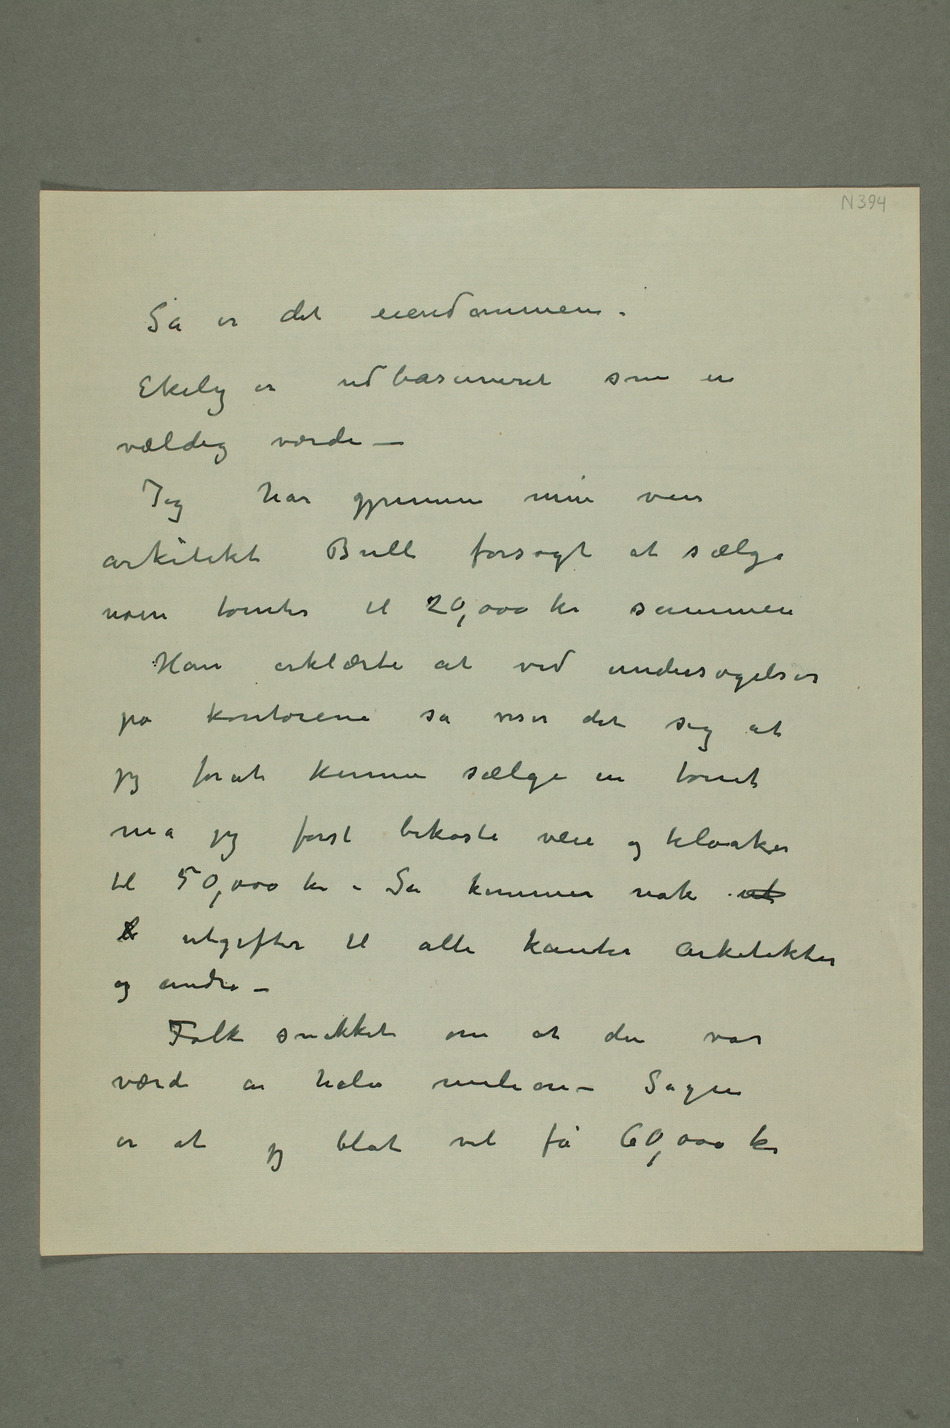 N394
Så er det eiendommen.
Ekely er udbasuneret som en
vældig værdi –
Jeg har gjennem min ven
arkitekt Bull forsøgt at sælge
noen tomter til 20,000 kr sammen
Han erklærte at ved undersøgelser
på kontorene så viser det sig at
jeg forat kunne sælge en tomt
må jeg først bekoste veie og kloaker
til 50,000 kr – Så kommer nok ut
utgifter til alle kanter arkitekter
og andre –
Folk snakket om at den var
værd en halv milion – Sagen
er at jeg blot vil få 60,000 kr